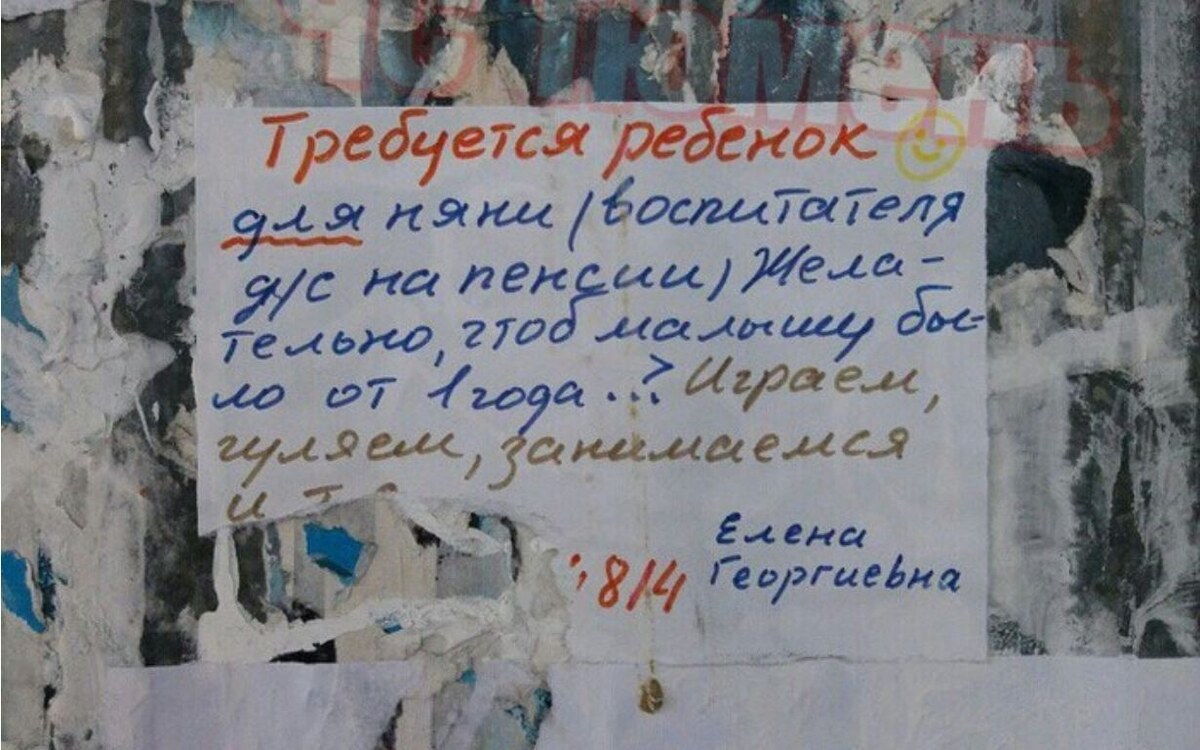 Тюмень
Требуется ребенок
для няни (воспитателя
д/с на пенсии) Жела-
тельно, чтоб малышу бы-
ло от 1 года...? Играем,
гуляем, занимаемся
и т
Елена
: 8/4 Георгиевна